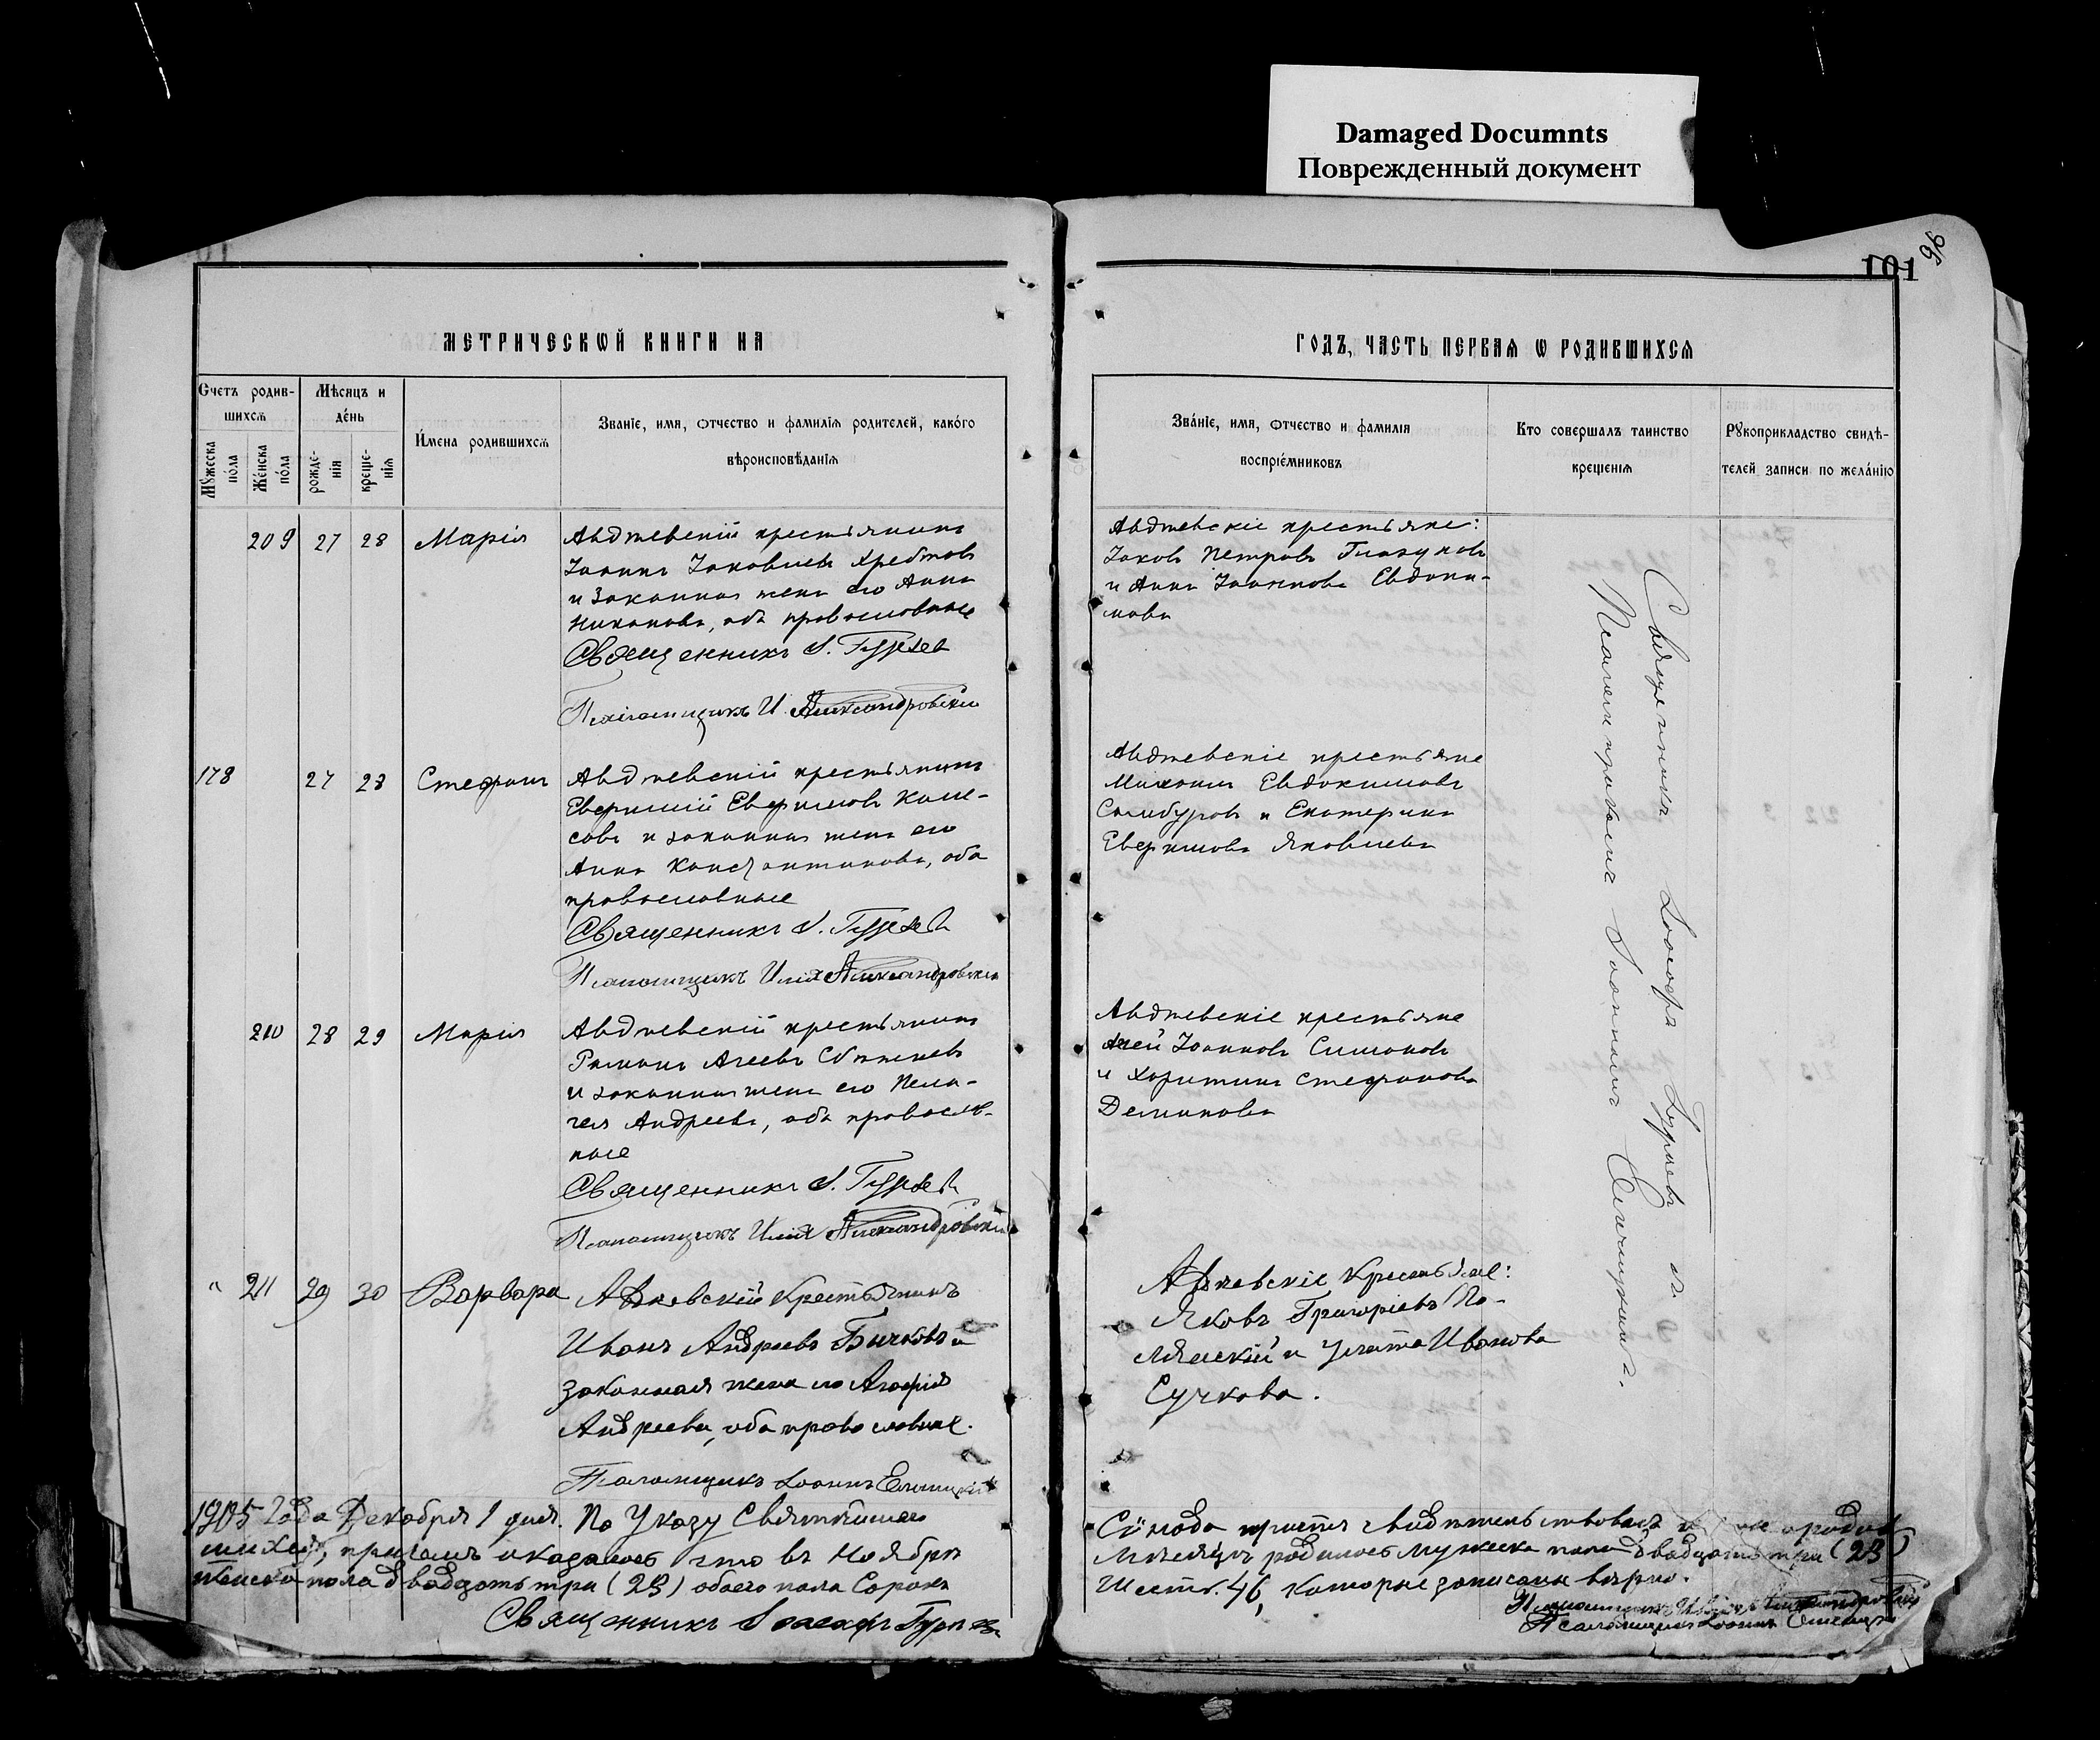 Damaged Documnts
Поврежденный документ
96
101
МЕТРИЧЕСКѠЙ КНИГИ НА
ГОДЪ, ЧАСТЬ ПЕРВАѦ Ѡ РОДИВШИХСѦ
Счетъ родив-
шихсѧ
Мѣсяцъ и
де́нь
Мꙋжеска
по́ла
Же́нска
по́ла
рожде-
нїѧ
креще-
нїѧ
И́мена родившихсѧ
Званїе, имя, ѻтчество и фамилїѧ родителей, како́го
вѣроисповѣ́данїѧ
Зва́нїе, имя, ѻтчество и фамилїя
воспрїе́мниковъ
Кто совершалъ таинство
крещенїѧ
Рꙋкоприкладство свидѣ-
телей записи по жела́нїю
209 27 28 Марія
Авдѣевскій крестьянинъ
Іоаннъ Іаковлевъ Хребтовъ
и законная жена его Анна
Никонова, оба православные
Священникъ І. Гурьев
Псаломщикъ И. Александровскій
Авдѣевскіе крестьяне:
Іаковъ Петровъ Глазуновъ
и Анна Іоаннова Евдоки-
мова
178 27 28 Стефанъ
Авдѣевскій крестьянинъ
Евфимій Евфимовъ Коле-
совъ и законная жена его
Анна Константинова, оба
православные
Священникъ І. Гурьев
Псаломщикъ Илія Александровскій
Авдѣевскіе крестьяне
Михаилъ Евдокимовъ
Самбуровъ и Екатерина
Евфимова Яковлева
210 28 29 Марія
Авдѣевскій крестьянинъ
Романъ Агеевъ
и законная жена его Пела-
гея Андреева, оба православ-
ные
Священникъ І. Гурьев
Псаломщикъ Илія Александровскій
Авдѣевскіе крестьяне
Агей Іоанновъ Симоновъ
и Харитина Стефанова
Деминова
" 211 29 30 Варвара
Авдѣевскій крестьянинъ
Иванъ Андреевъ Бычковъ и
законная жена его Агафія
Андреева, оба православные.
Псаломщикъ Іоаннъ
Авдѣевскіе крестьяне:
Яковъ Григоріевъ По-
лянскій и Улита Иванова
Сучкова.
Священникъ Іоасафъ Гурьевъ и
Псаломщикъ Іоаннъ
1905 года Декабря 1 дня. По Указу Святѣйшаго
Синода присемъ свидѣтельствовалъ о родив
шихся, причемъ оказалось что въ Ноябрѣ
мѣсяцѣ родилось мужеска пола двадцать три (23)
женска пола двадцать три (23) обоего пола Сорокъ
шесть. 46, которые записаны вѣрно.
Священникъ Іоасафъ Гурьев
Псаломщикъ Илія Александровскій
Псаломщикъ Іоаннъ